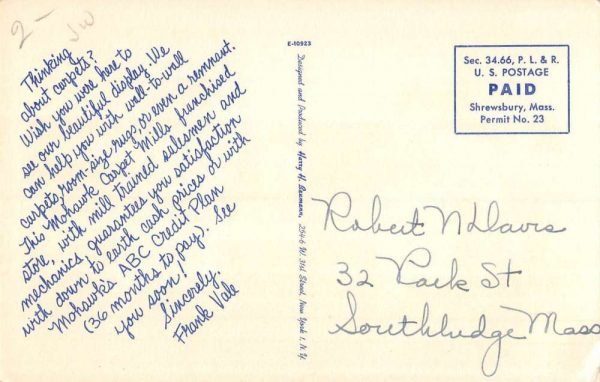 2-
JW
Thinking
about carpets?
Wish you were here to
see our beautiful display. We
can help you with wall-to-wall
carpets, room-size rugs, or even a remnant.
This Mohawk Carpet Mills franchised
store, with mill trained salesmen and
mechanics, guarantees you satisfaction
with down to earth cash prices or with
Mohawk's ABC Credit Plan
(36 months to pay). See
you soon!
Sincerely,
Frank Vale
E-10923
Designed and Produced by Harry H. Baumann, 254-6 W. 31st Street, New York 1, N.Y.
Sec. 34.66, P. L. & R.
U. S. POSTAGE
PAID
Shrewsbury, Mass.
Permit No. 23
Robert N Davis
32 Park St
Southbridge Mass